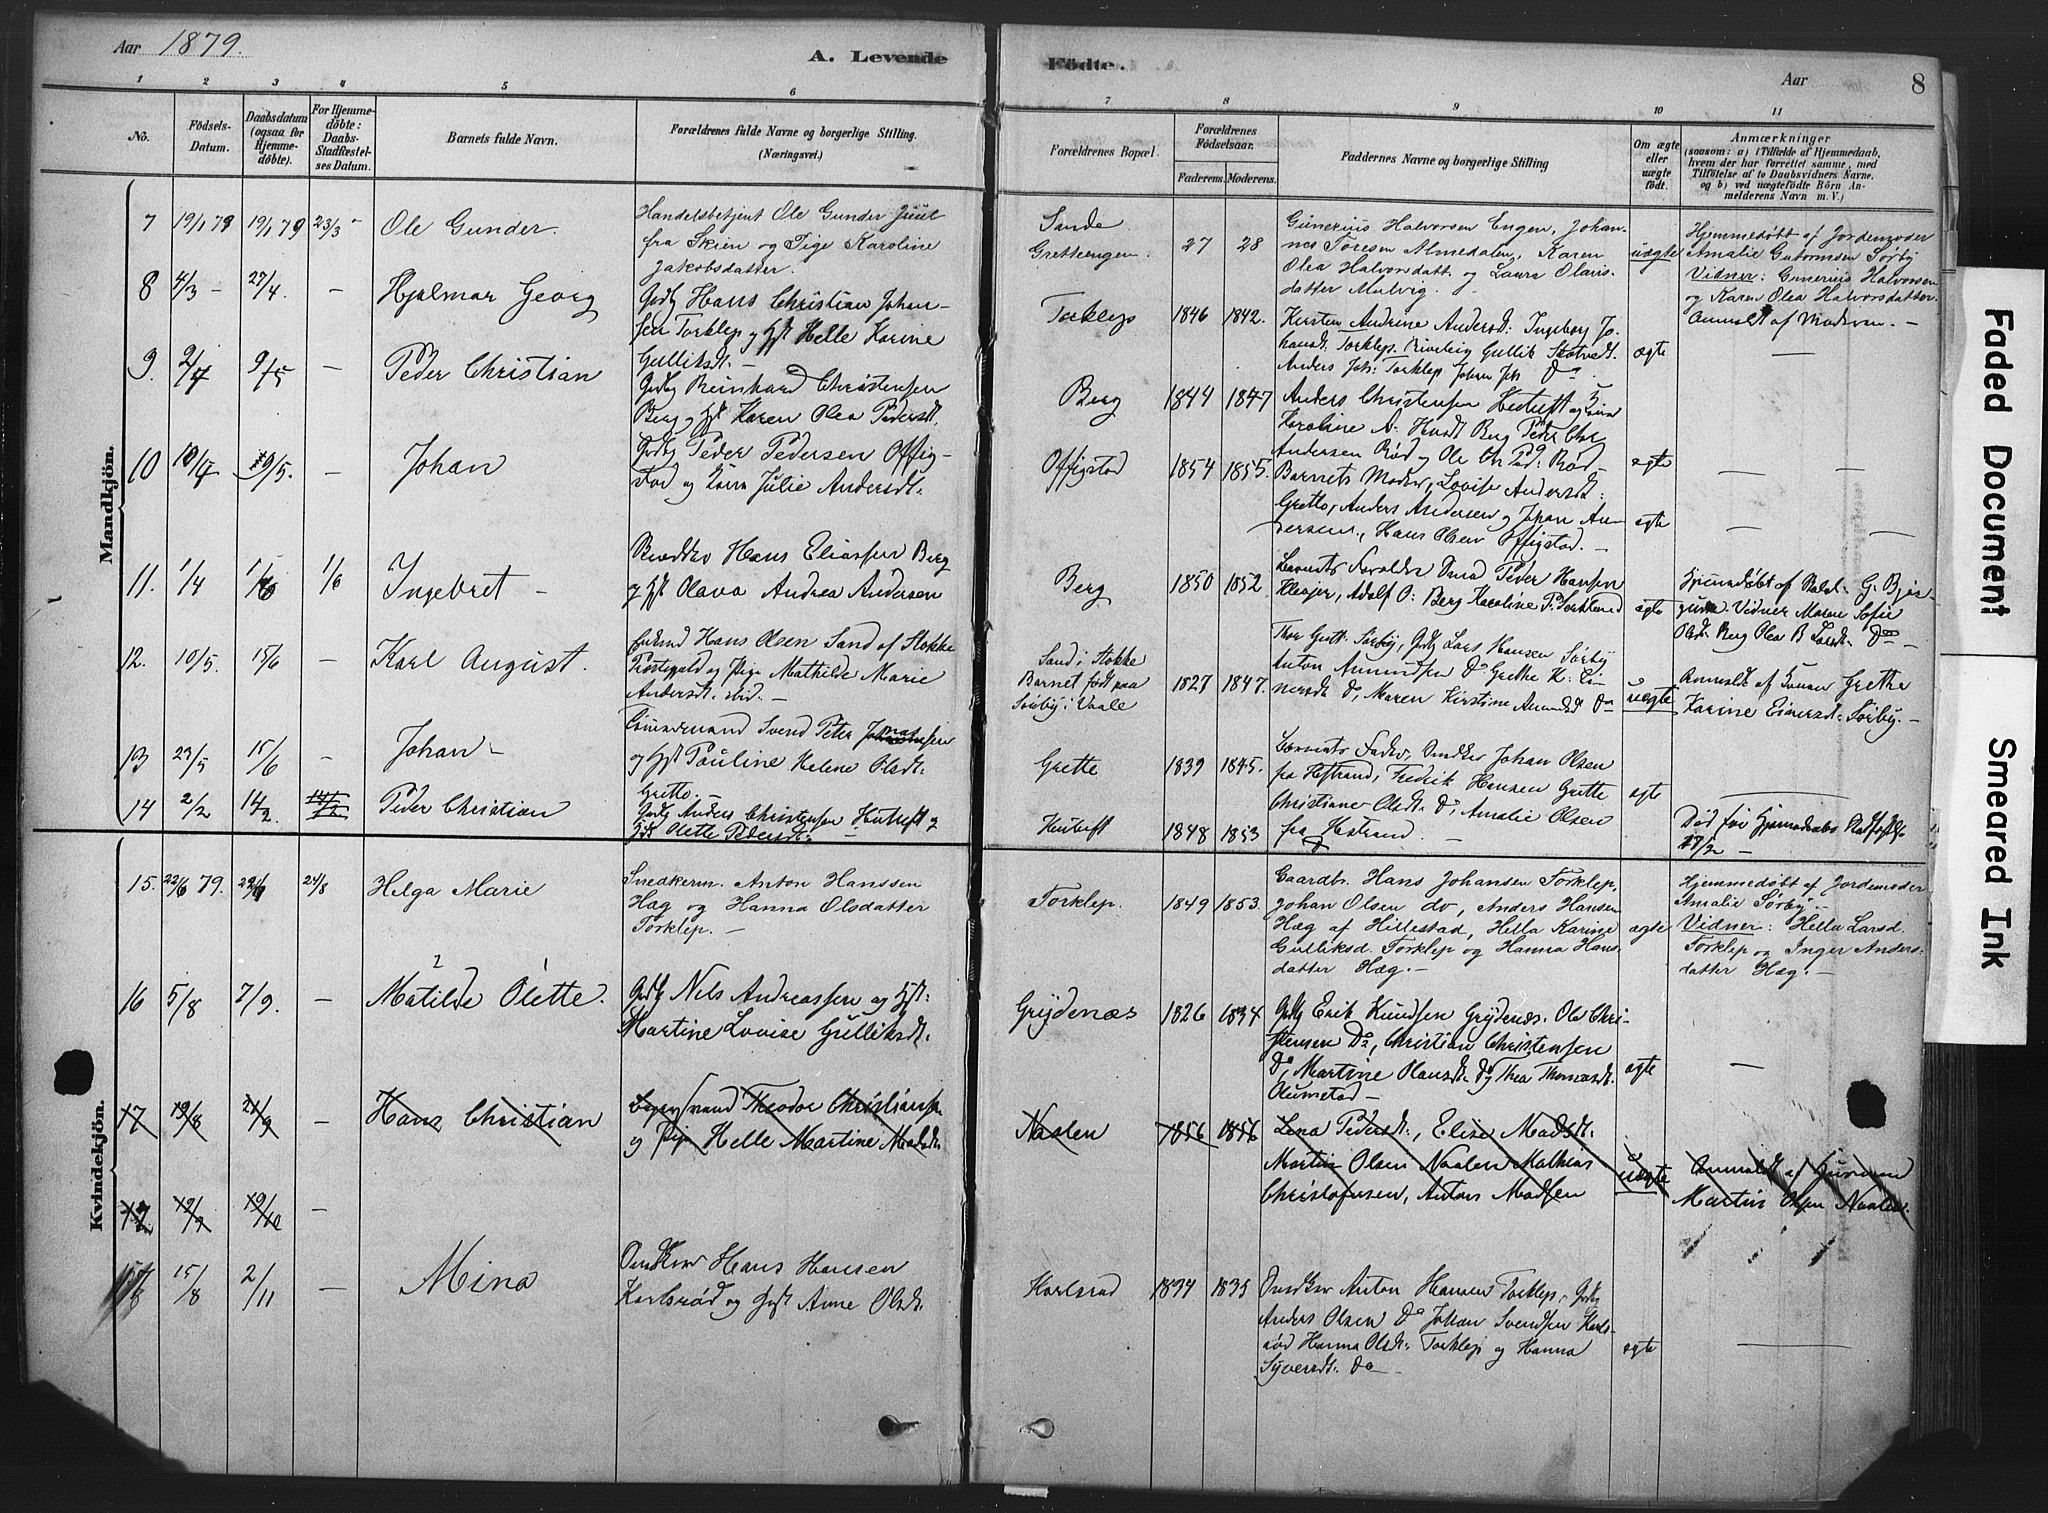 Aar 1879.
A. Levende
Födte.
Aar
8
1 2 3 4 5 6
7 8 9 10 11
No.
Fødsels-
Datum.
Daabsdatum
(ogsaa for
Hjemme-
døbte).
For Hjemme-
døbte:
Daabs-
Stadfæstel-
ses Datum.
Barnets fulde Navn.
Forældrenes fulde Navne og borgerlige Stilling.
(Næringsvei.)
Forældrenes Bopæl.
Forældrenes
Födselsaar.
Faderens. Moderens.
Faddernes Navne og borgerlige Stilling
Om ægte
eller
uægte
født.
Anmærkninger
(saasom: a) i Tilfælde af Hjemmedaab,
hvem der har forrettet samme, med
Tilföielse af to Daabsvidners Navne.
og b) ved uægtefödte Börn An-
melderens Navn m. V.)
Mandkjön.
7 19/1 79 19/1 79 23/3 -
Ole Gunder.
Handelsbetjent Ole Gunder Juul
fra Skien og Pige Karoline
Jakobsdatter.
Sande
Gretteengen
27 28
Gunerius Halvorsen Engen, Johan-
nes Toresen Almedalen, Karen
Olea Halvorsdatt. og Laura Olaris-
datter Mulvig.
uægte
Hjemmedøbt af Jordemoder
Amalie Guttormsen Sørby
Vidner: Gunerius Halvorsen
og Karen Olea Halvorsdatter.
Anmeldt af Moderen. -
8 4/3 - 27/4. -
Hjalmar Georg
Gbr Hans Christian Johan-
sen Torklep og Hst Helle Karine
Gulliksdt. -
Torklep
1846 1842.
Kirsten Andrine Andersd: Ingeborg Jo-
hansd: Torklep. Gullik Skotvedt.
Anders Joh: Torklep Johan Do
ægte
9. 9/5 -
Peder Christian
Gbr Reinhard Christensen
Berg og Hst Karen Olea Pedersdt.
Berg
1844 1847
Anders Christensen
Karoline A. Berg Peder Chr.
Andersen Rød og Ole Rød -
ægte
10 -
Johan
Gbr Peder Pedersen Offig-
stad og Kone Julie Andersdt.
Offigstad
1854 1855.
Barnets Moder, Lovise Andersdt:
Grette, Anders Andersen og Johan An-
dersen, Hans Olsen Offigstad. -
ægte
11. 1/4 1/6 1/6
Ingebret -
Hans Eliassen Berg
og Hst Olava Andrea Andersen
Berg
1850 1852.
Barnets Forældre Peder Hansen
Adolf O: Berg Karoline P.
ægte
Hjemmedøbt af
Vidner Maren Sofie
Olsdt. Berg Olea B Larsdt. Do -
12. 10/5. 15/6 -
Karl August.
Enkemd Hans Olsen Sand af Stokke
Præstegjeld og Pige Mathilde Marie
Andersdt. ibid. -
Sand i Stokke
Barnet født paa
Sørby i Vaale
1827 1847.
Thor Gutt. Sørby, Gbr Lars Hansen Sørby
Anton Amundsen Do Grethe K: Ei-
nersdt Do, Maren Kirstine Amundsd Do
uægte
Anmeldt af Konen Grethe
Karine Einersdt. Sørby. -
13 23/5 15/6 -
Johan -
Tømmermand Svend Peter
og Hst Pauline Helene Olsdt.
Grette.
Grette
1839 1845.
Barnets Fader, Johan Olsen
fra Hestrand, Fredrik Hansen Grette
Christiane Olsdt. Do, Amalie Olsen
fra Hestrand. -
ægte
14 2/2 14/2.
Peder Christian
Gbr Anders Christensen og
Hst Olette Pedersdt.
1848 1853
Død før Hjemmedaabs Stadfæstelse
Kvindekjön.
15. 22/6 79. 24/8
Helga Marie
Snedkerm. Anton Hanssen
Hæg og Hanna Olsdatter
Torklep. -
Torklep.
1849 1853.
Gaardbr. Hans Johansen Torklep,
Johan Olsen do, Anders Hansen
Hæg af Hillestad, Hella Karine
Gulliksd. Torklep og Hanna Hans-
datter Hæg. -
ægte
Hjemmedøbt af Jordemoder
Amalie Sørby. -
Vidner: Hella Larsd.
Torklep og Inger Anders-
datter Hæg. -
16 5/8 7/9. -
2 1
Matilde Olette.
Gbr Nels Andreassen og Hst:
Martine Lovise Gulliksdt.
Grydenæs
1826 1834
Gbr Erik Knudsen Grydenæs. Ole Chri-
stensen Do, Christian Christensen
Do, Martine Olausdt. Do, Thea Thomasdt.
Olumstad -
ægte
17 19/8 21/9 -
Hans Christian
Theodor Christiansen
og Pige Helle Martine Madsdt.
Naalen
1856 1856
Lena Pedersdt:, Elise Madsdt:
Martin Olsen Naalen Mathias
Christofersen, Anton Madsen
uægte
Anmeldt af Husmand
Martin Olsen Naalen.
17 19/10 -
15/8 2/11 -
Mina
Hans Hansen
Karlsrød og Hst Anne Olsdt.
Karlsrød
1834 1835
Anton Hansen Torklep, Gbr
Anders Olsen Do Johan Svendsen Karls-
rød Hanna Olsdt: Torklep og Hanna
Syversdt: Do
ægte
Faded Document
Smeared Ink